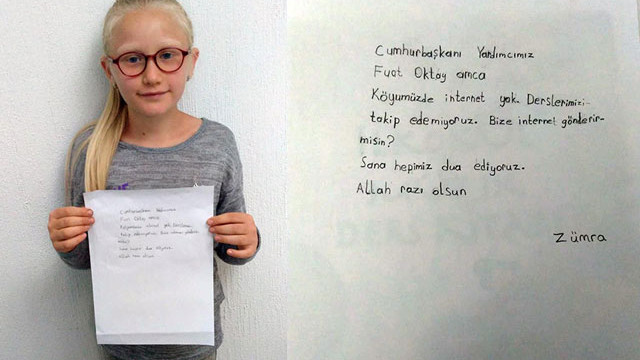 Cumhurbaşkanı Yardımcımız
Fuat Oktay amca
Köyümüzde internet yok. Derslerimizi
takip edemiyoruz. Bize internet gönderir-
misin?
Sana hepimiz dua ediyoruz.
Allah razı olsun
Zümra